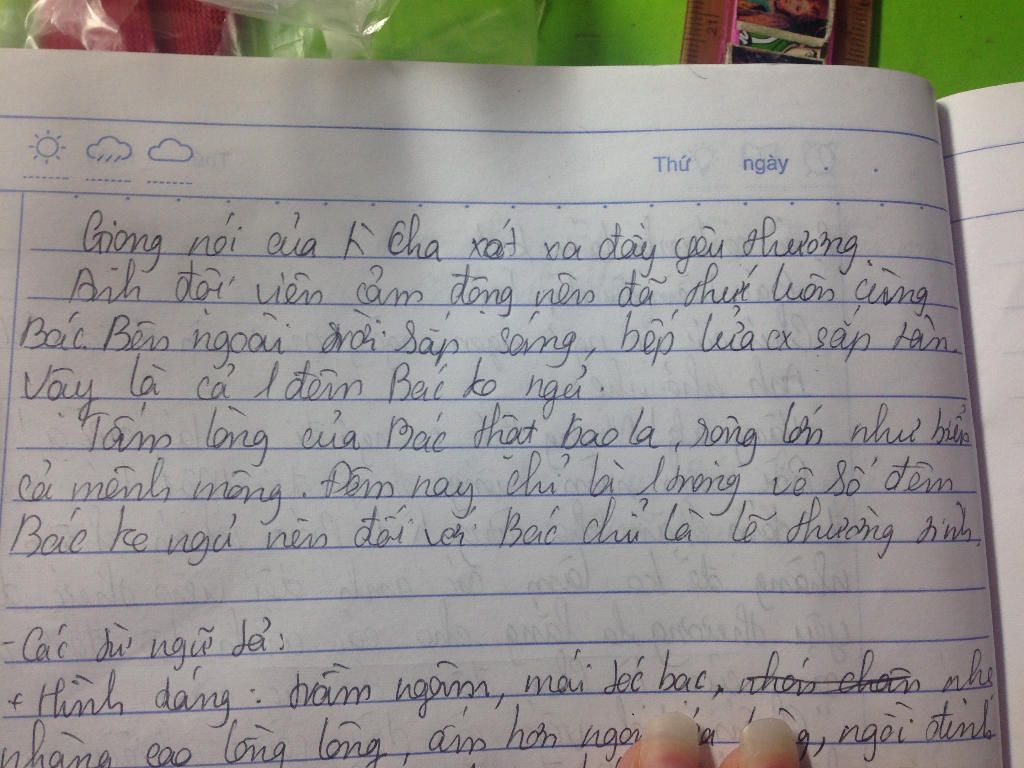 Thứ ngày . .
Giọng nói của vì cha xót xa đầy yêu thương.
Anh đội viên cảm động nên đã thức luôn cùng
Bác. Bên ngoài trời sắp sáng, bếp lửa cx sắp tàn.
Vậy là cả 1 đêm Bác ko ngủ.
Tấm lòng của Bác thật bao la, rộng lớn như biển
cả mênh mông. Đêm nay chỉ là 1 trong vô số đêm
Bác ko ngủ nên đối với Bác chỉ là lẽ thường tình.
- Các từ ngữ tả:
+ Hình dáng: trầm ngâm, mái tóc bạc, nhón chân nhẹ
nhàng cao lồng lộng, ấm hơn ngọn lửa hồng, ngồi đinh